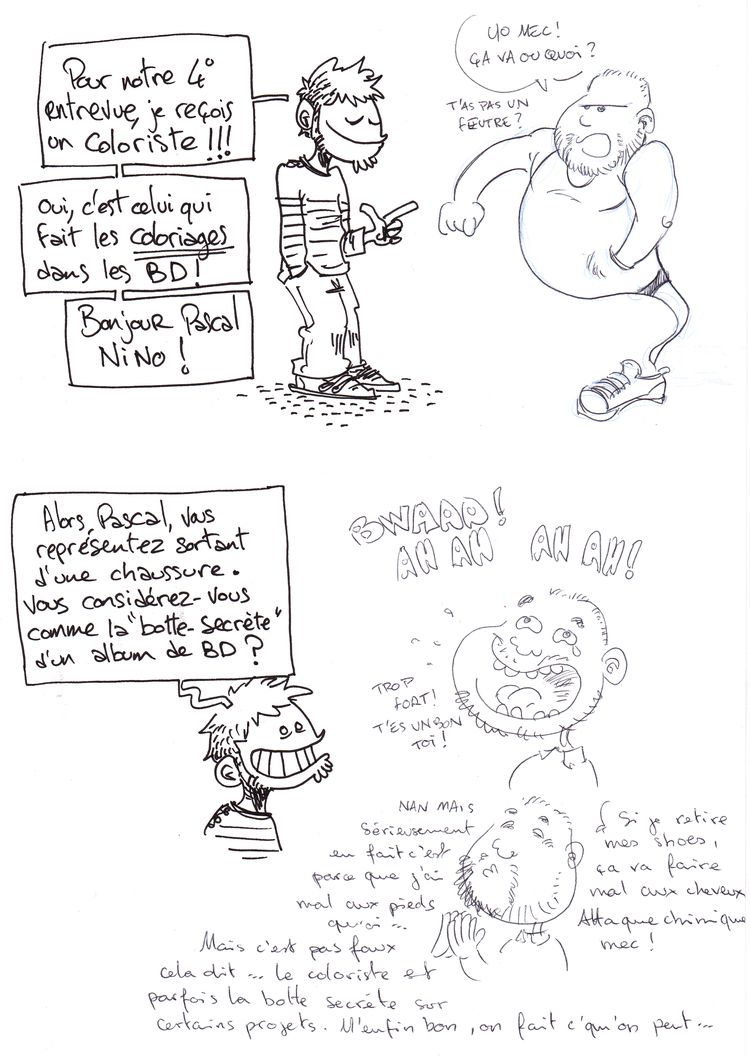 Pour notre 4°
entrevue, je reçois
un coloriste !!!
Oui, c'est celui qui
fait les coloriages
dans les BD !
Bonjour Pascal
NiNO !
YO MEC !
ÇA VA OU QUOI ?
T'AS PAS UN
FEUTRE ?
Alors, Pascal, vous
représentez sortant
d'une chaussure.
Vous considérez-vous
comme la "botte-secrète"
d'un album de BD ?
BWAAAD !
AH AH AH AH !
TROP
FORT !
T'ES UN BON
TOI !
NAN MAIS
Sérieusement
en fait c'est
parce que j'ai
mal aux pieds
qu'oi ...
Si je retire
mes shoes,
ça va faire
mal aux cheveux
Attaque chimique
mec !
Mais c'est pas faux
cela dit ... le coloriste est
parfois la botte secrète sur
certains projets. M'enfin bon, on fait c'qu'on peut ...